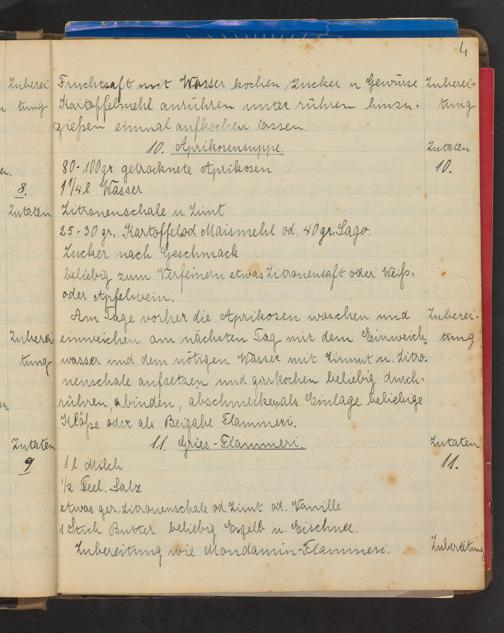 4
Zuberei
tung
8.
Zutaten
Zuberei
tung
Zutaten
9
Fruchtsaft mit Wasser kochen, Zucker u Gewürze
Kartoffelmehl anrühren unter rühren hinzu-
gießen einmal aufkochen lassen.
Zuberei-
tung
10. Aprikosensuppe.
Zutaten
10.
80-100 gr getrocknete Aprikosen
1 1/4 l Wasser
Zitronenschale u Zimt
25-30 gr. Kartoffel od Maismehl od 40 gr Sago.
Zucker nach Geschmack
beliebig zum Verfeinern etwas Zitronensaft oder Weiß-
oder Apfelwein.
Am Tage vorher die Aprikosen waschen und
Zuberei-
tung
einweichen am nächsten Tag mit dem Einweich-
wasser und dem nötigen Wasser mit Zimmt u. Zitro-
nenschale aufsetzen und garkochen beliebig durch-
rühren, abinden, abschmecken als Einlage beliebige
Klöße oder als Beigabe Flammeri.
11. Gries-Flammeri.
Zutaten
11.
1 l Milch
1/2 Teel. Salz
etwas ger. Zitronenschale od Zimt od. Vanille
1 Stich Butter beliebig Eigelb u Eischnee.
Zubereitung wie Mondamin-Flammeri.
Zubereitung